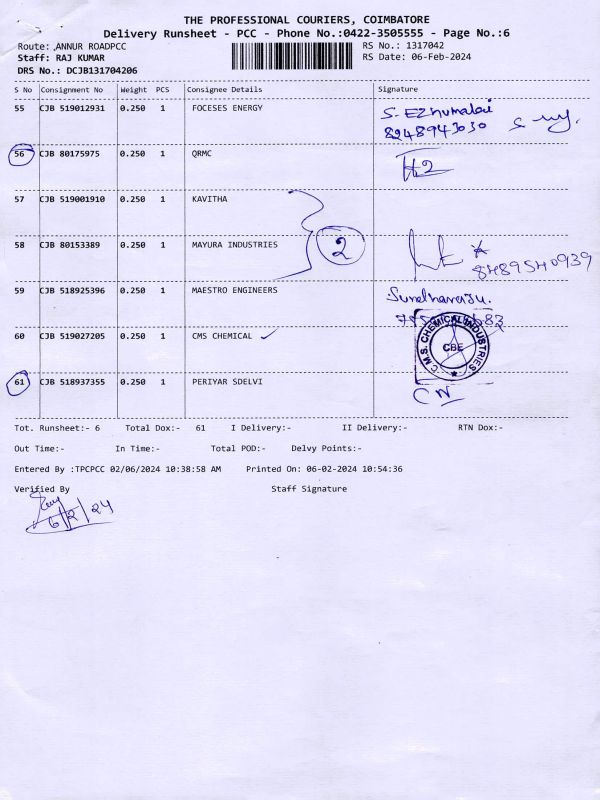 THE PROFESSIONAL COURIERS, COIMBATORE
Delivery Runsheet - PCC - Phone No.:0422-3505555 - Page No.:6
Route: ANNUR ROADPCC
RS No.: 1317042
Staff: RAJ KUMAR
RS Date: 06-Feb-2024
DRS No.: DCJB131704206
S No Consignment No Weight PCS Consignee Details Signature
55 CJB 519012931 0.250 1 FOCESES ENERGY S. Ezhumalai
8248943030
56 CJB 80175975 0.250 1 QRMC
57 CJB 519001910 0.250 1 KAVITHA
2
58 CJB 80153389 0.250 1 MAYURA INDUSTRIES
8489540939
59 CJB 518925396 0.250 1 MAESTRO ENGINEERS
60 CJB 519027205 0.250 1 CMS CHEMICAL ✓
C.M.S. CHEMICAL INDUSTRIES
CBE
61 CJB 518937355 0.250 1 PERIYAR SDELVI
Tot. Runsheet:- 6 Total Dox:- 61 I Delivery:- II Delivery:- RTN Dox:-
Out Time:- In Time:- Total POD:- Delvy Points:-
Entered By :TPCPCC 02/06/2024 10:38:58 AM Printed On: 06-02-2024 10:54:36
Verified By Staff Signature
6/2/24